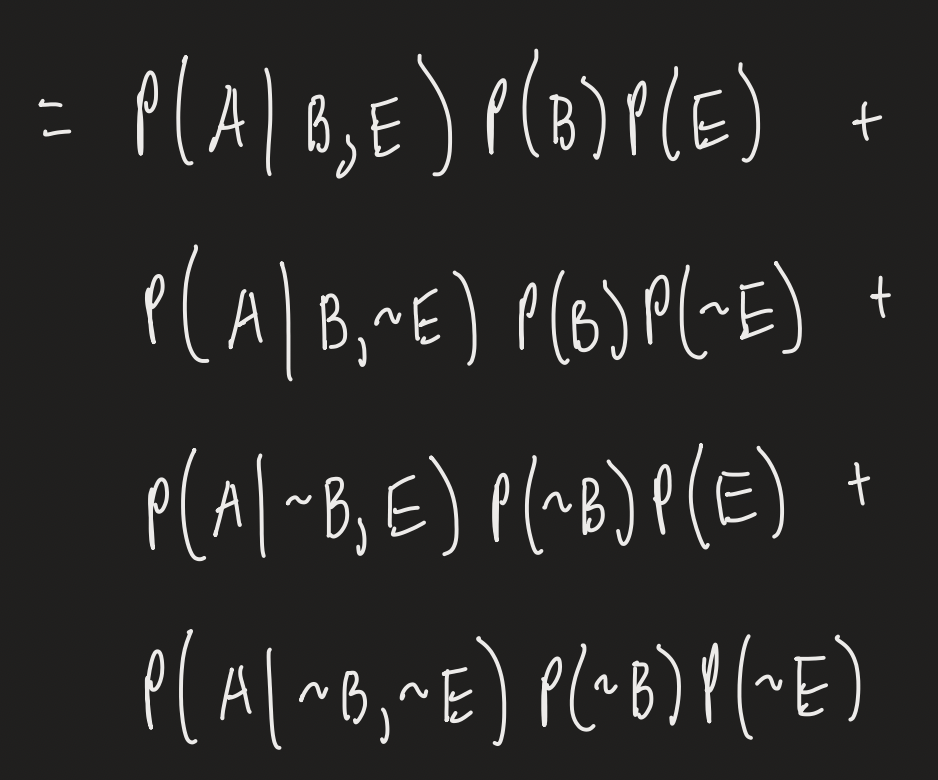 = P(A | B, E) P(B) P(E) +
P(A | B, ~E) P(B) P(~E) +
P(A | ~B, E) P(~B) P(E) +
P(A | ~B, ~E) P(~B) P(~E)